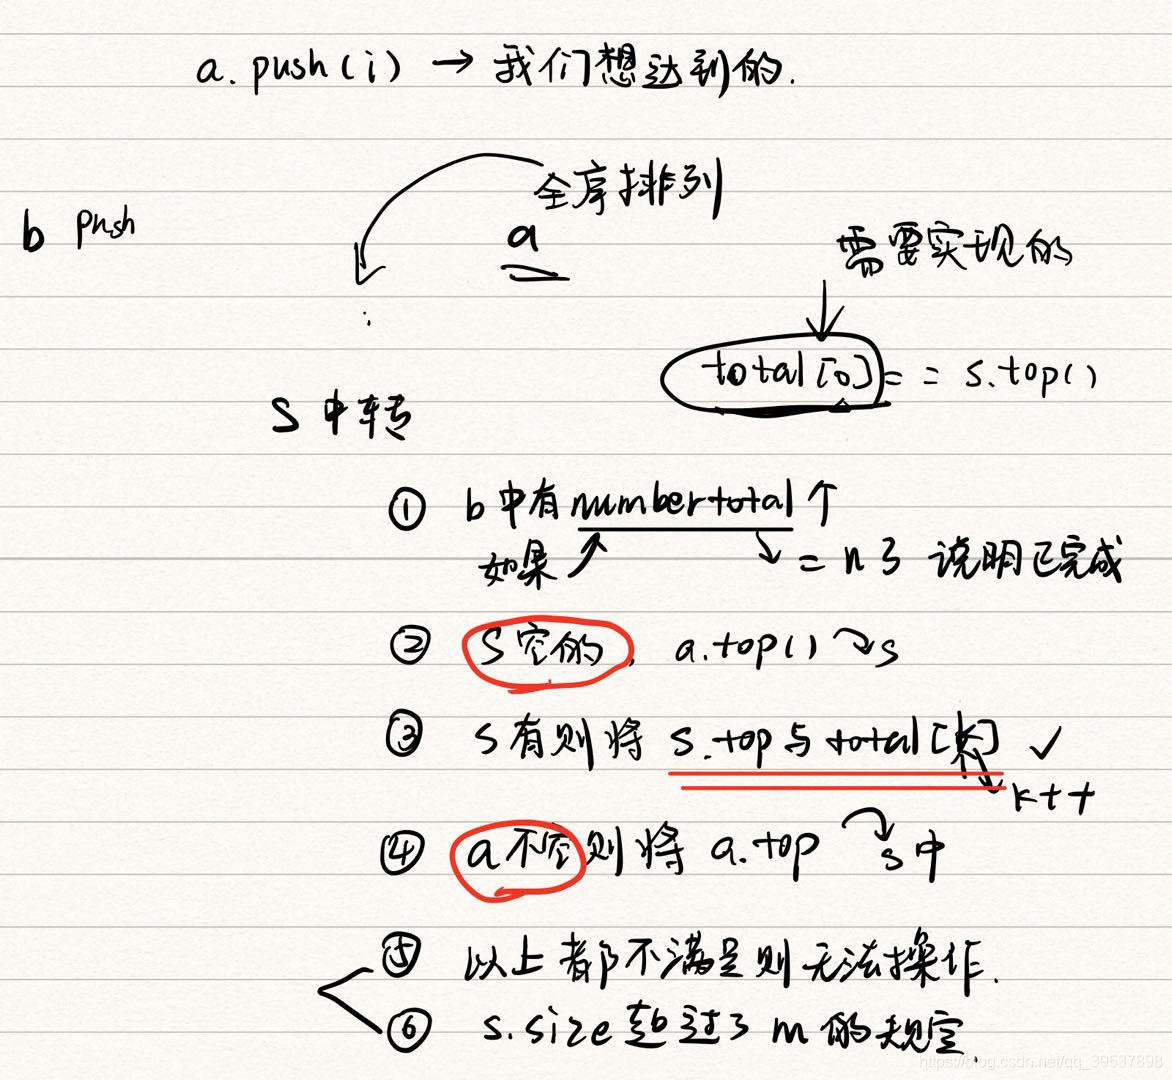 a. push(i) → 我们想达到的.
全序排列
b push
a
需要实现的
total[0] == s.top()
S 中转
① b中有numbertotal个
如果 = n了 说明已完成
② S空的, a.top() s
③ s有则将 s.top与total[k] ✓
k++
④ a不空则将 a.top s中
⑤ 以上都不满足则无法操作.
⑥ s.size超过了m的规定.
https://blog.csdn.net/qq_39537898